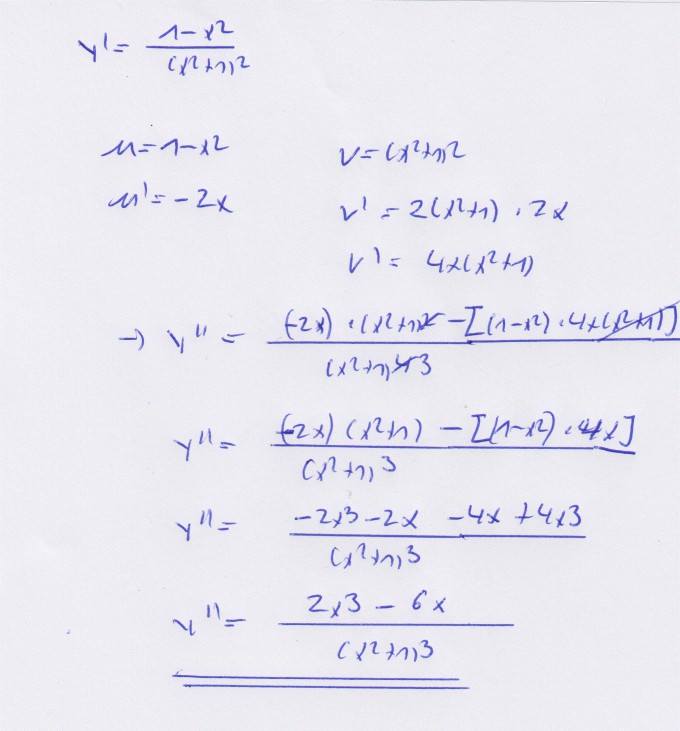 y' = (1-x²)/(x²+1)²
u = 1-x² v = (x²+1)²
u' = -2x v' = 2(x²+1) · 2x
v' = 4x(x²+1)
→ y'' = ((-2x) · (x²+1)² - [(1-x²) · 4x(x²+1)])/(x²+1)⁴ 3
y'' = ((-2x)(x²+1) - [(1-x²) · 4x])/(x²+1)³
y'' = (-2x³-2x -4x+4x³)/(x²+1)³
y'' = (2x³ - 6x)/(x²+1)³